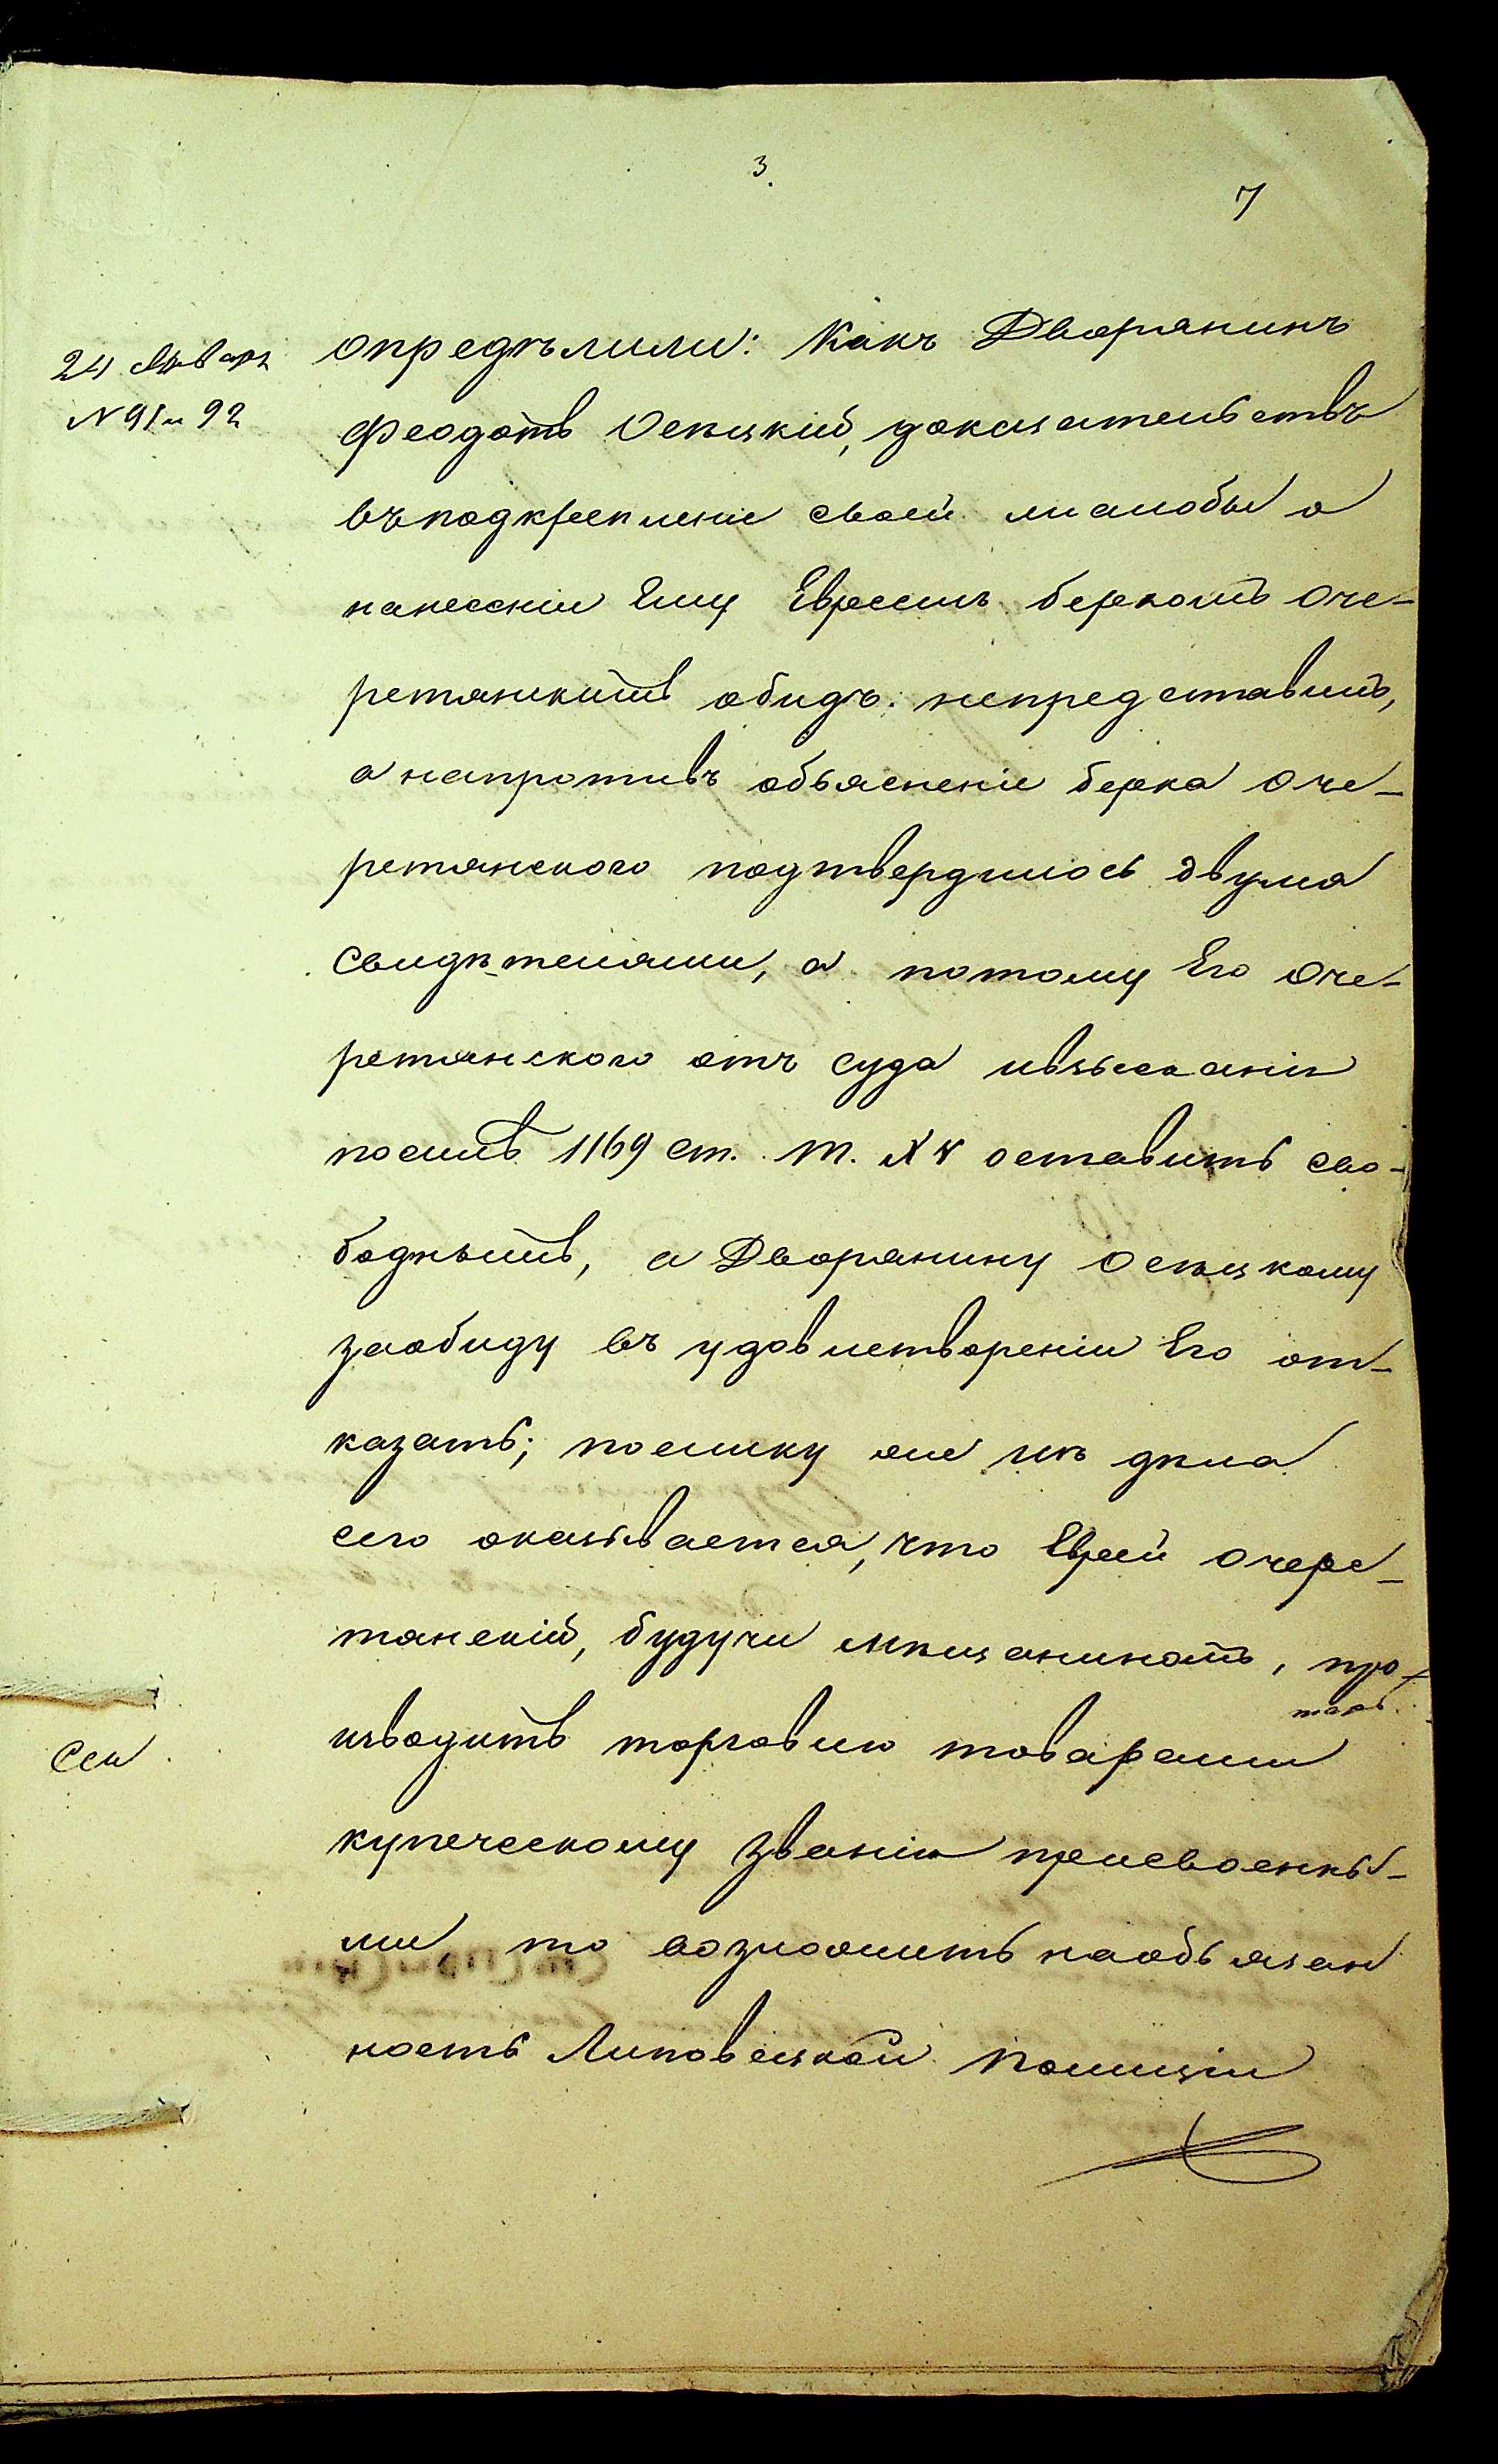 3.
7
24 Января
№ 91 и 92
опредѣлили: Какъ Дворянинъ
Феодотъ Осѣцкій, доказательствъ
въподкрепленіе своей жалобы о
нанесеніи Ему Евреемъ беркомъ Оче-
ретянскимъ обидъ непредставилъ,
а напротивъ объясненіе берка Оче-
ретянского подтвердилось двума
Свидѣтелями, а потому Его Оче-
ретянского отъ суда ивзысканія
посилѣ 1169 ст. т. XV оставить сво-
боднымъ, а Дворянину Осѣцкому
заобиду въ удовлетвореніи Его от-
казать; поелику же изъ дѣла
сего оказывается, что Еврей Очере-
тянскій, будучи мѣщаниномъ, про-
изводитъ торговлю товарами
купеческому званію присвоенны-
ми, то возложить наобязан
ность Липовецкой Полиціи